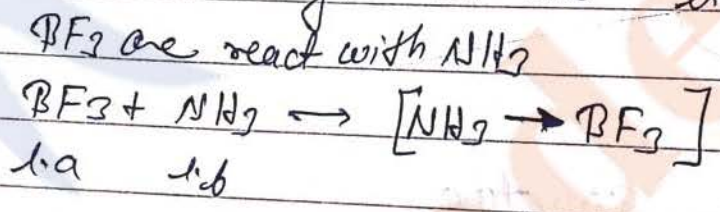 BF3 are react with NH3
BF3 + NH3 → [NH3 → BF3]
l.a l.b